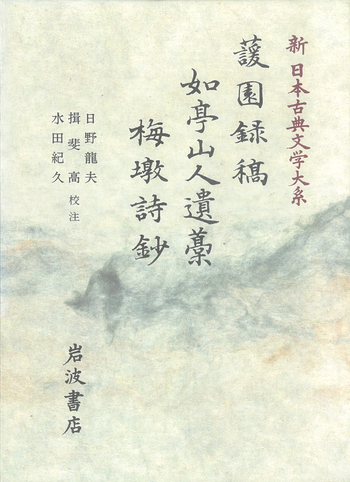 新 日本古典文学大系
蘐園録稿
如亭山人遺藁
梅墩詩鈔
日野龍夫
揖斐高 校注
水田紀久
岩波書店